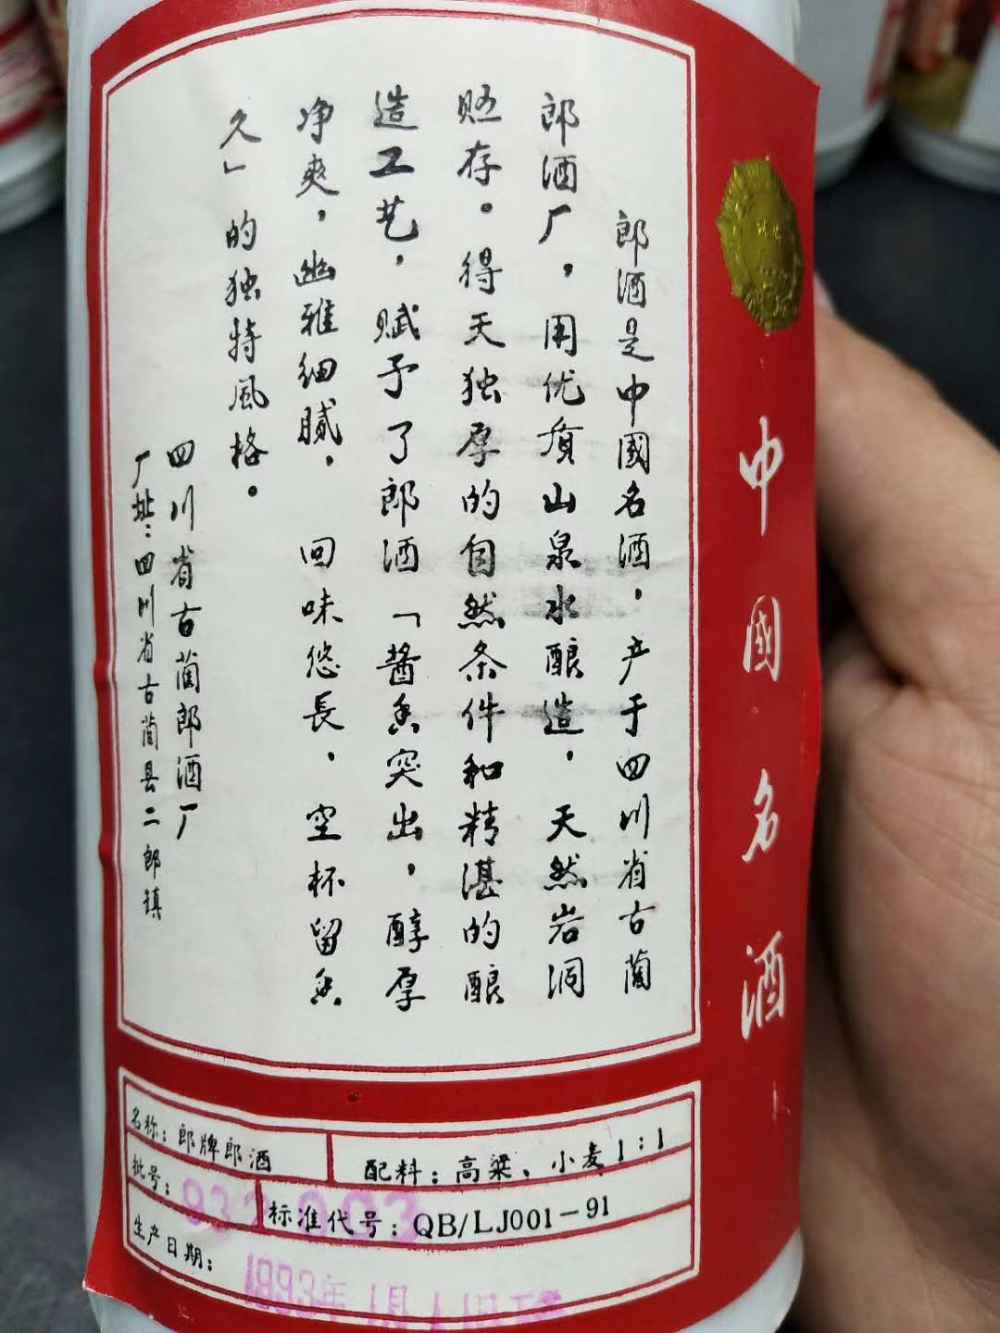 中國名酒
郎酒是中國名酒，产于四川省古蔺
郎酒厂，用优质山泉水酿造，天然岩洞
贮存。得天独厚的自然条件和精湛的酿
造工艺，赋予了郎酒「酱香突出，醇厚
净爽，幽雅细腻，回味悠長，空杯留香
久」的独特風格。
四川省古蔺郎酒厂
厂址：四川省古蔺县二郎镇
名称：郎牌郎酒
配料：高粱、小麦1:1
批号：
标准代号：QB/LJ001-91
生产日期：
1993年1月1日